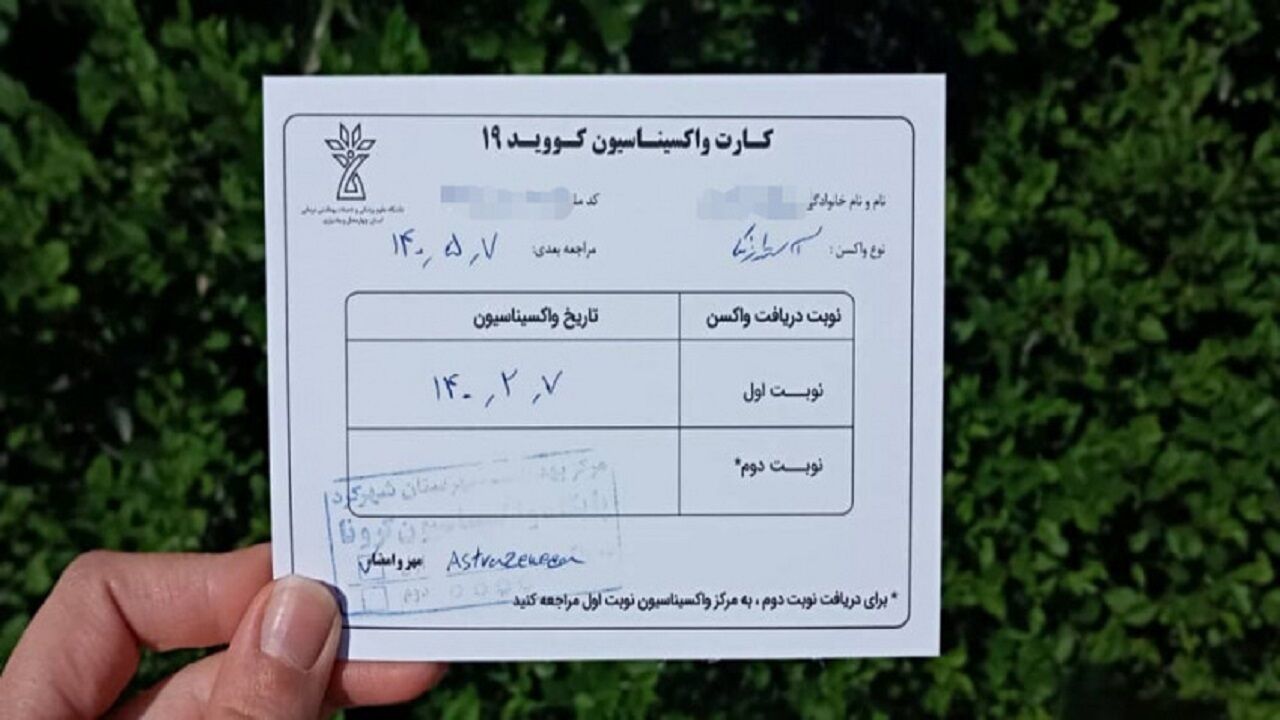 کارت واکسیناسیون کووید ۱۹
دانشگاه علوم پزشکی و خدمات بهداشتی درمانی
استان چهارمحال و بختیاری
نام و نام خانوادگی کد ملی
نوع واکسن: آسترازنکا مراجعه بعدی: ۱۴۰۰٫۵٫۷
نوبت دریافت واکسن تاریخ واکسیناسیون
نوبت اول ۱۴۰۰٫۲٫۷
نوبت دوم*
شهرستان شهرکرد
واکسیناسیون کرونا
مهر و امضاء AstraZeneca
دوم
* برای دریافت نوبت دوم ، به مرکز واکسیناسیون نوبت اول مراجعه کنید